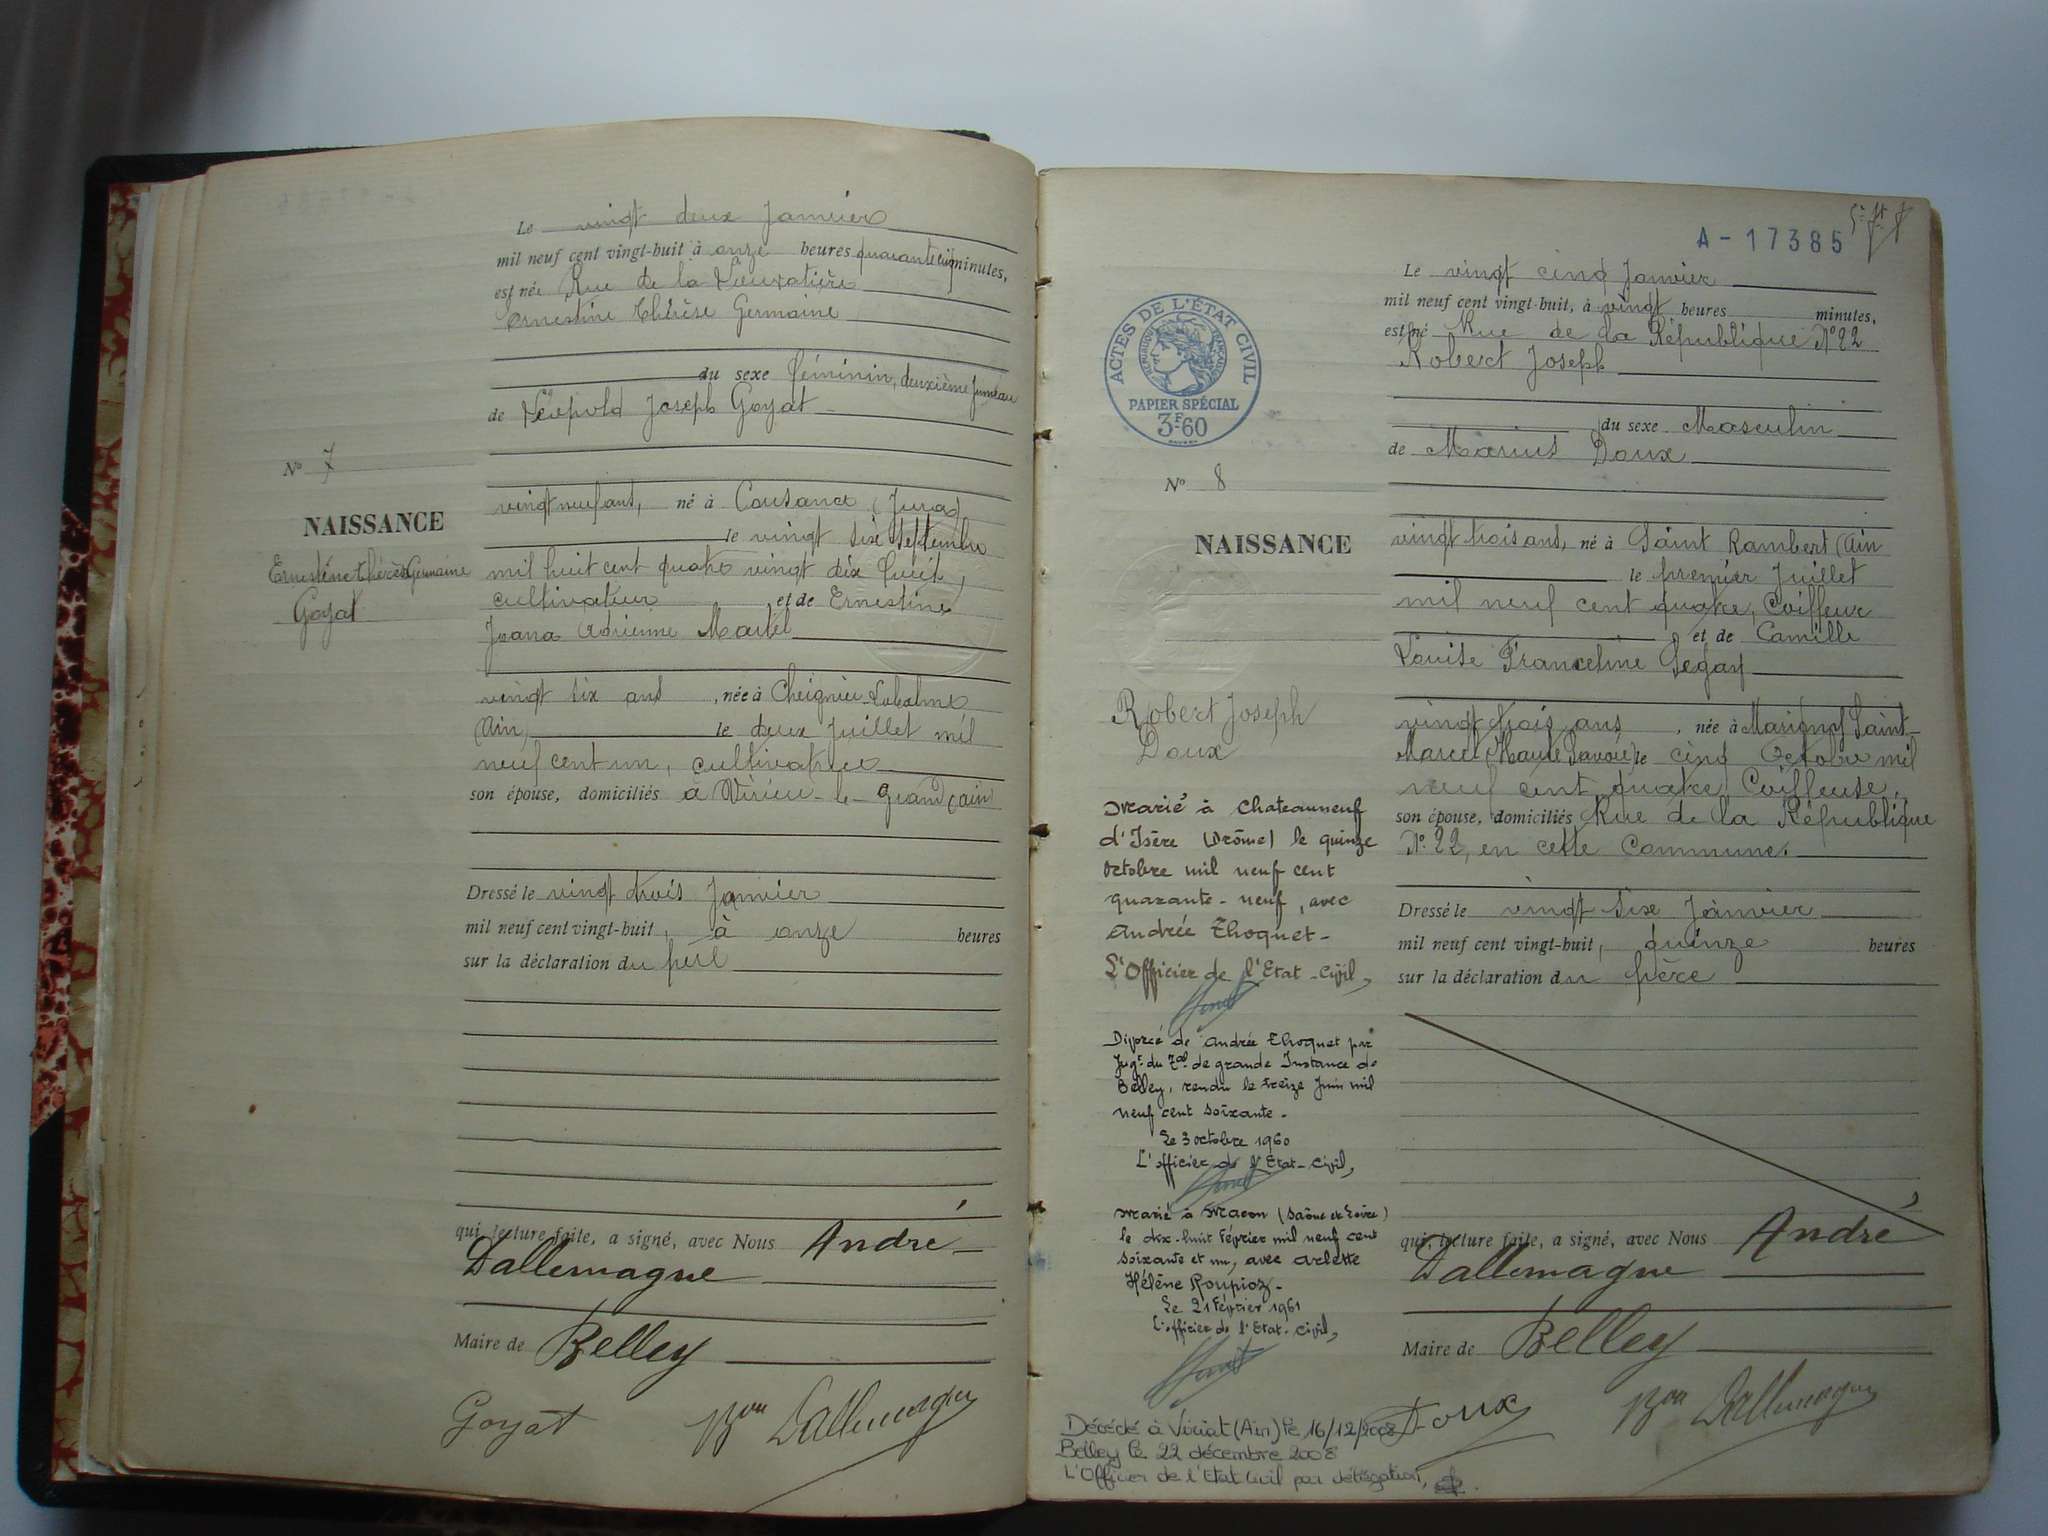 Le vingt deux Janvier
mil neuf cent vingt-huit à onze heures quarante cinq minutes,
est née Rue de la
Ernestine Thérèse Germaine
du sexe féminin, deuxième jumeau
de Léopold Joseph Goyat
N° 7
NAISSANCE
Ernestine Thérèse Germaine
Goyat
vingt neuf ans, né à Cousance (Jura)
le vingt six Septembre
mil huit cent quatre vingt dix huit,
cultivateur et de Ernestine
Joana Adrienne Martel
vingt six ans, née à Cheignieu Labalme
(Ain) le deux Juillet mil
neuf cent un, cultivatrice
son épouse, domiciliés à Virieu-le-Grand (Ain)
Dressé le vingt trois Janvier
mil neuf cent vingt-huit, à onze heures
sur la déclaration du père
qui, lecture faite, a signé, avec Nous André
Dallemagne
Maire de Belley
Goyat Bon Dallemagne
A-17385
Le vingt cinq Janvier
mil neuf cent vingt-huit, à vingt heures minutes,
est né Rue de la République N° 22
Robert Joseph
du sexe Masculin
de Marius Doux
ACTES DE L'ÉTAT CIVIL
RÉPUBLIQUE FRANÇAISE
PAPIER SPÉCIAL
3F60
N° 8
NAISSANCE
Robert Joseph
Doux
vingt trois ans, né à Saint Rambert (Ain
le premier Juillet
mil neuf cent quatre, Coiffeur
et de Camille
Louise Franceline Segay
vingt trois ans, née à Marigny Saint-
Marcel (Haute Savoie) le cinq Octobre mil
neuf cent quatre, Coiffeuse,
son épouse, domiciliés Rue de la République
N° 22, en cette Commune.
Dressé le vingt six Janvier
mil neuf cent vingt-huit, quinze heures
sur la déclaration du père
qui, lecture faite, a signé, avec Nous André
Dallemagne
Maire de Belley
Doux Bon Dallemagne
Marié à Chateauneuf
d'Isère (Drôme) le quinze
Octobre mil neuf cent
quarante-neuf, avec
Andrée Thoquet-
L'Officier de l'Etat-Civil,
Divorcé de Andrée Thoquet par
Jugt du Tal de grande Instance de
Belley, rendu le treize Juin mil
neuf cent soixante-
Le 3 octobre 1960
L'officier de l'Etat-Civil,
Marié à Macon (Saône et Loire)
le dix-huit Février mil neuf cent
soixante et un, avec Arlette
Hélène Roupioz-
Le 21 Février 1961
L'officier de l'Etat-Civil,
Décédé à Viriat (Ain) le 16/12/2008
Belley le 22 décembre 2008
L'Officier de l'Etat Civil par délégation,